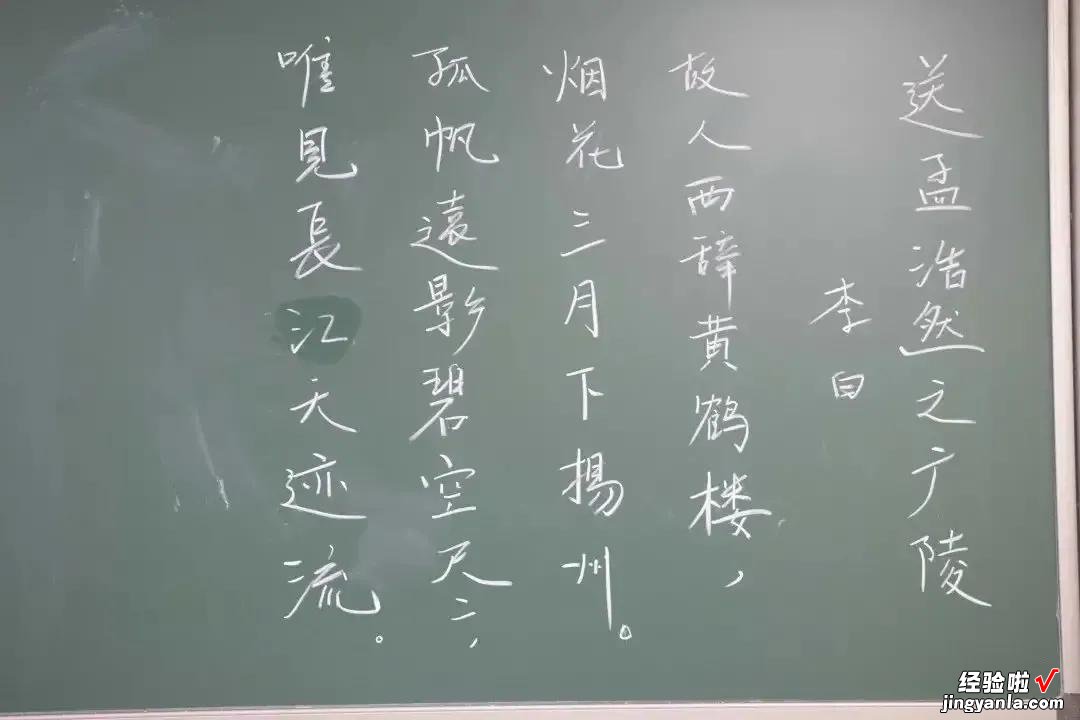 送孟浩然之广陵
李白
故人西辞黄鹤楼，
烟花三月下揚州。
孤帆遠影碧空尽，
唯見長江天迹流。
经验啦√
jingyanla.com